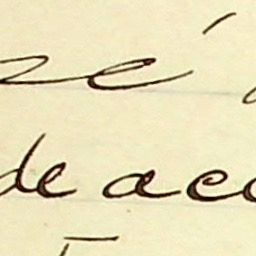 zé
de acc